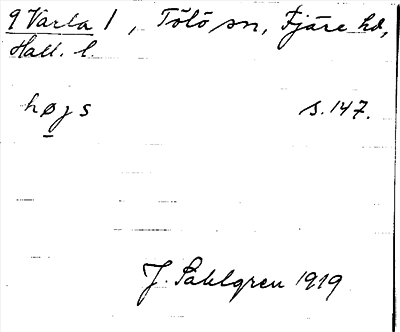 9 Varla 1, Tölö sn, Fjäre hd,
Hall. l.
højs s. 147.
J. Sahlgren 1919